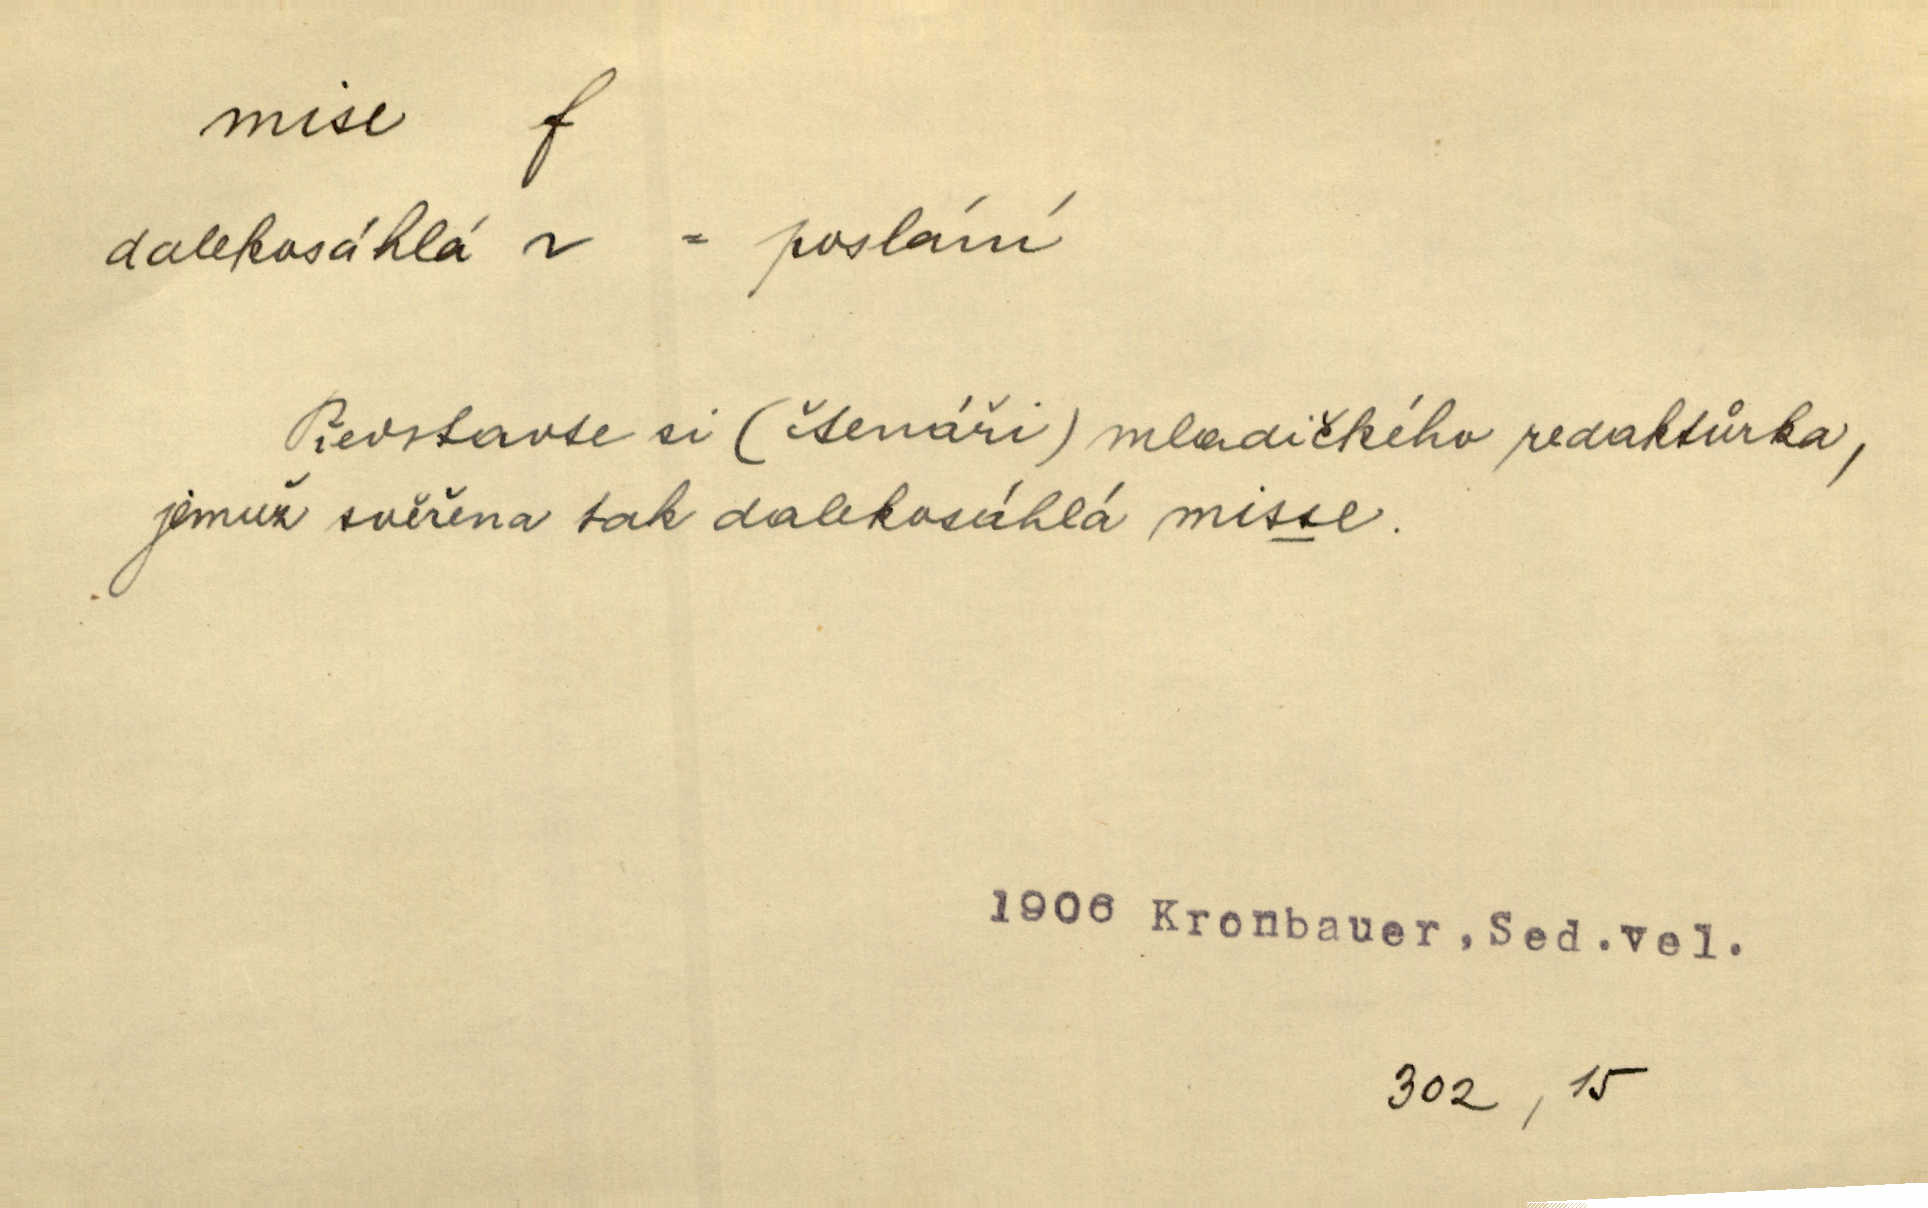 mise f
dalekosáhlá ~ = poslání
Představte si (čtenáři) mladičkého redaktůrka,
jemuž svěřena tak dalekosáhlá misse.
1906 Kronbauer, Sed.vel.
302, 15